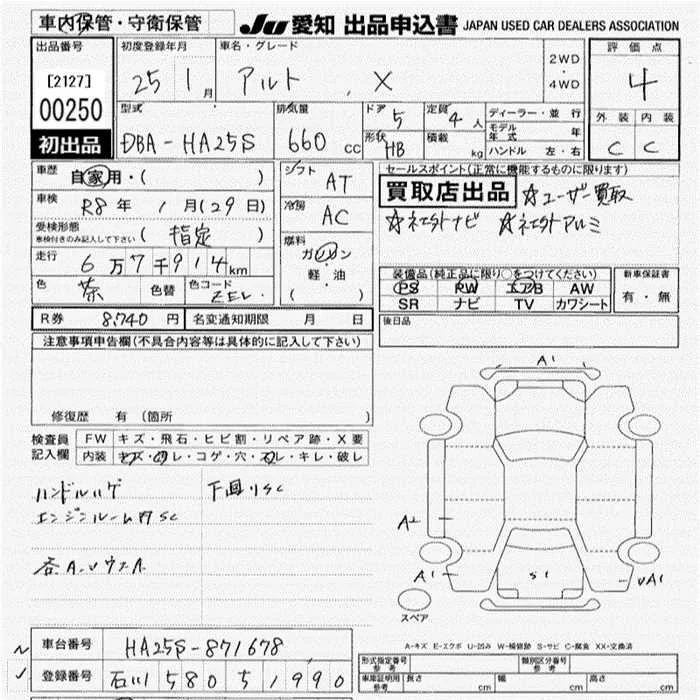 車内保管・守衛保管 JU 愛知 出品申込書 JAPAN USED CAR DEALERS ASSOCIATION
出品番号 初度登録年月 車名・グレード 評価点
[2127] 25 1月 アルト X 2WD・4WD 4
00250 型式 排気量 ドア 5 定員 4人 ディーラー・並行 外装 内装
初出品 DBA-HA25S 660cc 形状 HB 積載 kg モデル年式 年 C C
ハンドル 左・右
車歴 自家用・( ) シフト AT セールスポイント(正常に機能するものに限ります)
車検 R8年 1月(29日) 冷房 AC 買取店出品 ☆ユーザー買取
受検形態 車検付きのみ記入して下さい (指定) 燃料 ガソリン・軽油 ( ) ☆ネクストナビ ☆ネクストアルミ
走行 6万7千914km 装備品(純正品に限り○をつけてください) 新車保証書
色 茶 色替 色コード ZEL PS PW エアB AW 有・無
SR ナビ TV カワシート
R券 8,740円 名変通知期限 月 日 後日品
注意事項申告欄(不具合内容等は具体的に記入して下さい)
修復歴 有 (箇所 )
A1
検査員記入欄 FW キズ・飛石・ヒビ割・リペア跡・X要
内装 キズ・汚レ・コゲ・穴・スレ・キレ・破レ
ハンドルハゲ 下回りSC
エンジンルーム内SC
A2
A1 S1 UA1
スペア
車台番号 HA25S-871678
A-キズ E-エクボ U-凹み W-補修跡 S-サビ C-腐食 XX-交換済
登録番号 石川 580 う 1990
形式指定番号 参考 類別区分番号 参考
車庫証明用 参考 長さ cm 幅 cm 高さ cm